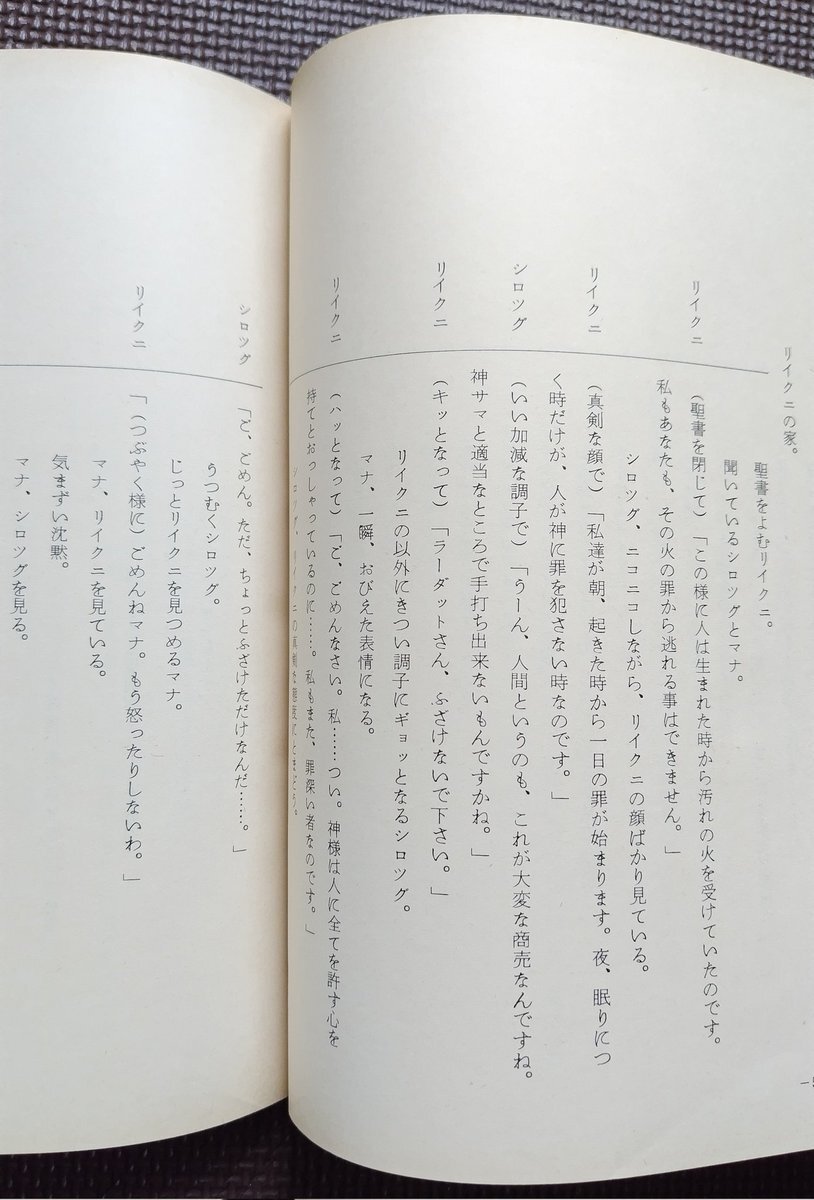 リイクニの家。
聖書をよむリイクニ。
聞いているシロツグとマナ。
リイクニ (聖書を閉じて)「この様に人は生まれた時から汚れの火を受けていたのです。
私もあなたも、その火の罪から逃れる事はできません。」
シロツグ、ニコニコしながら、リイクニの顔ばかり見ている。
リイクニ (真剣な顔で)「私達が朝、起きた時から一日の罪が始まります。夜、眠りにつ
く時だけが、人が神に罪を犯さない時なのです。」
シロツグ (いい加減な調子で)「うーん、人間というのも、これが大変な商売なんですね。
神サマと適当なところで手打ち出来ないもんですかね。」
リイクニ (キッとなって)「ラーダットさん、ふざけないで下さい。」
リイクニの以外にきつい調子にギョッとなるシロツグ。
マナ、一瞬、おびえた表情になる。
リイクニ (ハッとなって)「ご、ごめんなさい。私……つい。神様は人に全てを許す心を
持てとおっしゃっているのに……。私もまた、罪深い者なのです。」
シロツグ、リイクニの真剣な態度にとまどう。
シロツグ 「ご、ごめん。ただ、ちょっとふざけただけなんだ……。」
うつむくシロツグ。
じっとリイクニを見つめるマナ。
リイクニ 「(つぶやく様に)ごめんねマナ。もう怒ったりしないわ。」
マナ、リイクニを見ている。
気まずい沈黙。
マナ、シロツグを見る。